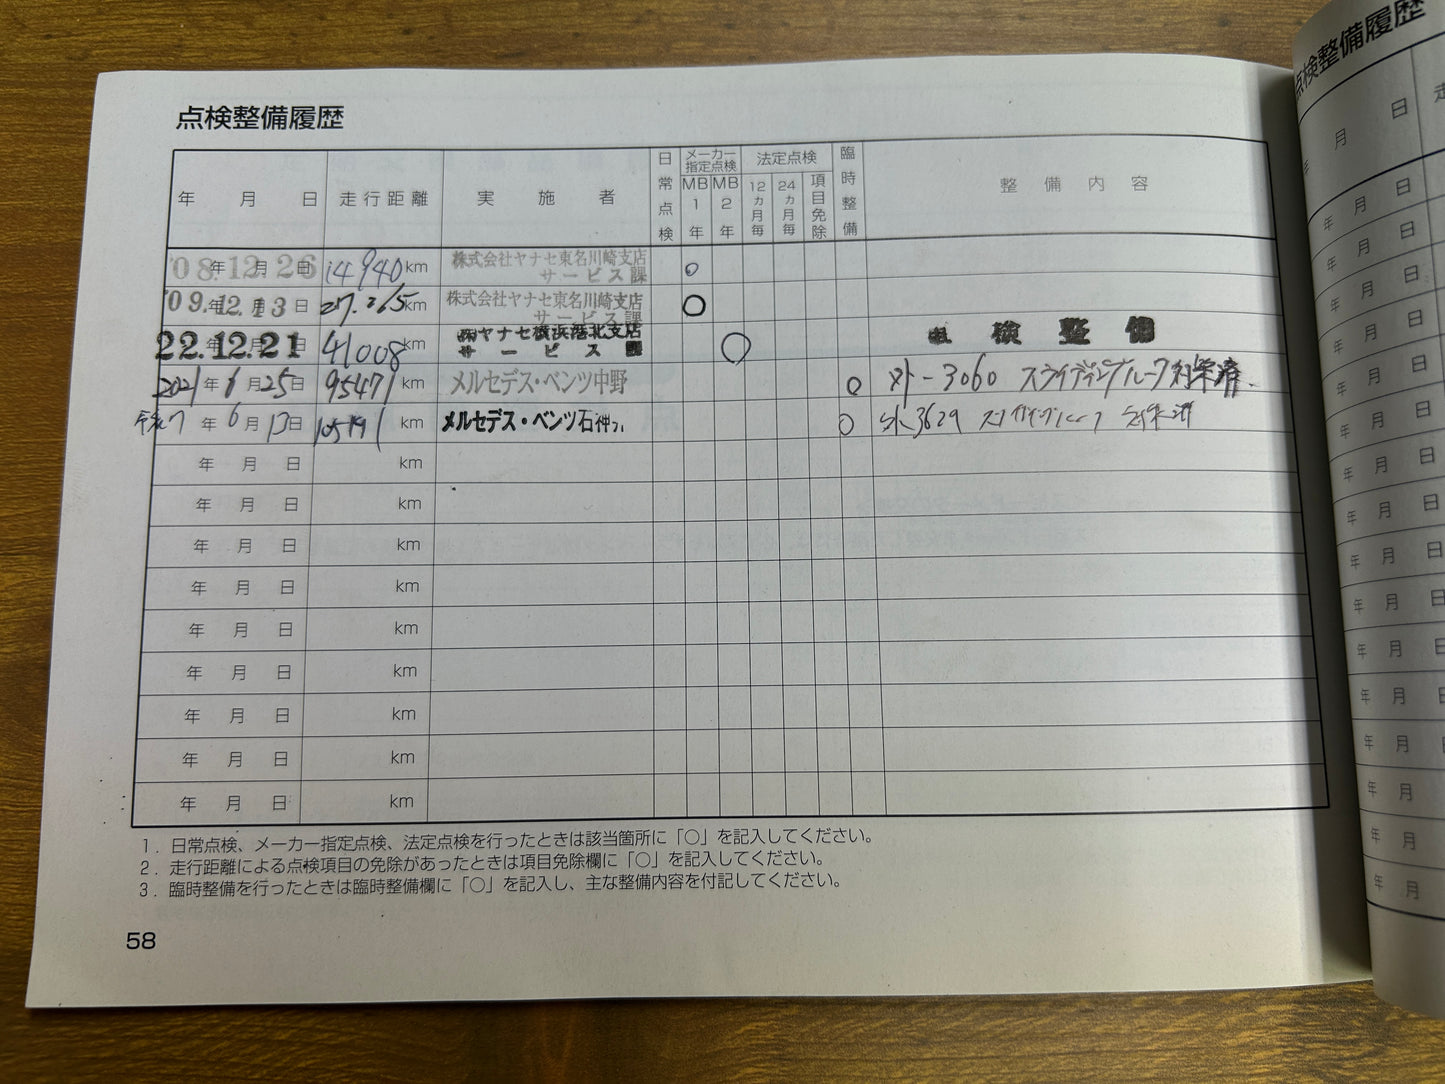 点検整備履歴
年 月 日 走行距離 実施者 日常点検 メーカー指定点検 MB1年 MB2年 法定点検 12ヵ月毎 24ヵ月毎 項目免除 臨時整備 整備内容
'08.年12.月26日 14940km 株式会社ヤナセ東名川崎支店 サービス課 ○
'09.年12.月13日 27.265km 株式会社ヤナセ東名川崎支店 サービス課 ○
22.年12.月21日 41008km ㈱ヤナセ横浜港北支店 サービス課 ○ 検整備
2021年6月25日 95471km メルセデス・ベンツ中野 ○ 外-3060 スライディングルーフ対策済
令和7年6月13日 km メルセデス・ベンツ石神 ○ 外3629
年 月 日 km
年 月 日 km
年 月 日 km
年 月 日 km
年 月 日 km
年 月 日 km
年 月 日 km
年 月 日 km
年 月 日 km
1．日常点検、メーカー指定点検、法定点検を行ったときは該当箇所に「○」を記入してください。
2．走行距離による点検項目の免除があったときは項目免除欄に「○」を記入してください。
3．臨時整備を行ったときは臨時整備欄に「○」を記入し、主な整備内容を付記してください。
58
点検整備履歴
年 月 日 走
年 月 日
年 月 日
年 月 日
年 月 日
年 月 日
年 月 日
年 月 日
年 月 日
年 月 日
年 月 日
年 月 日
年 月 日
年 月
年 月
年 月